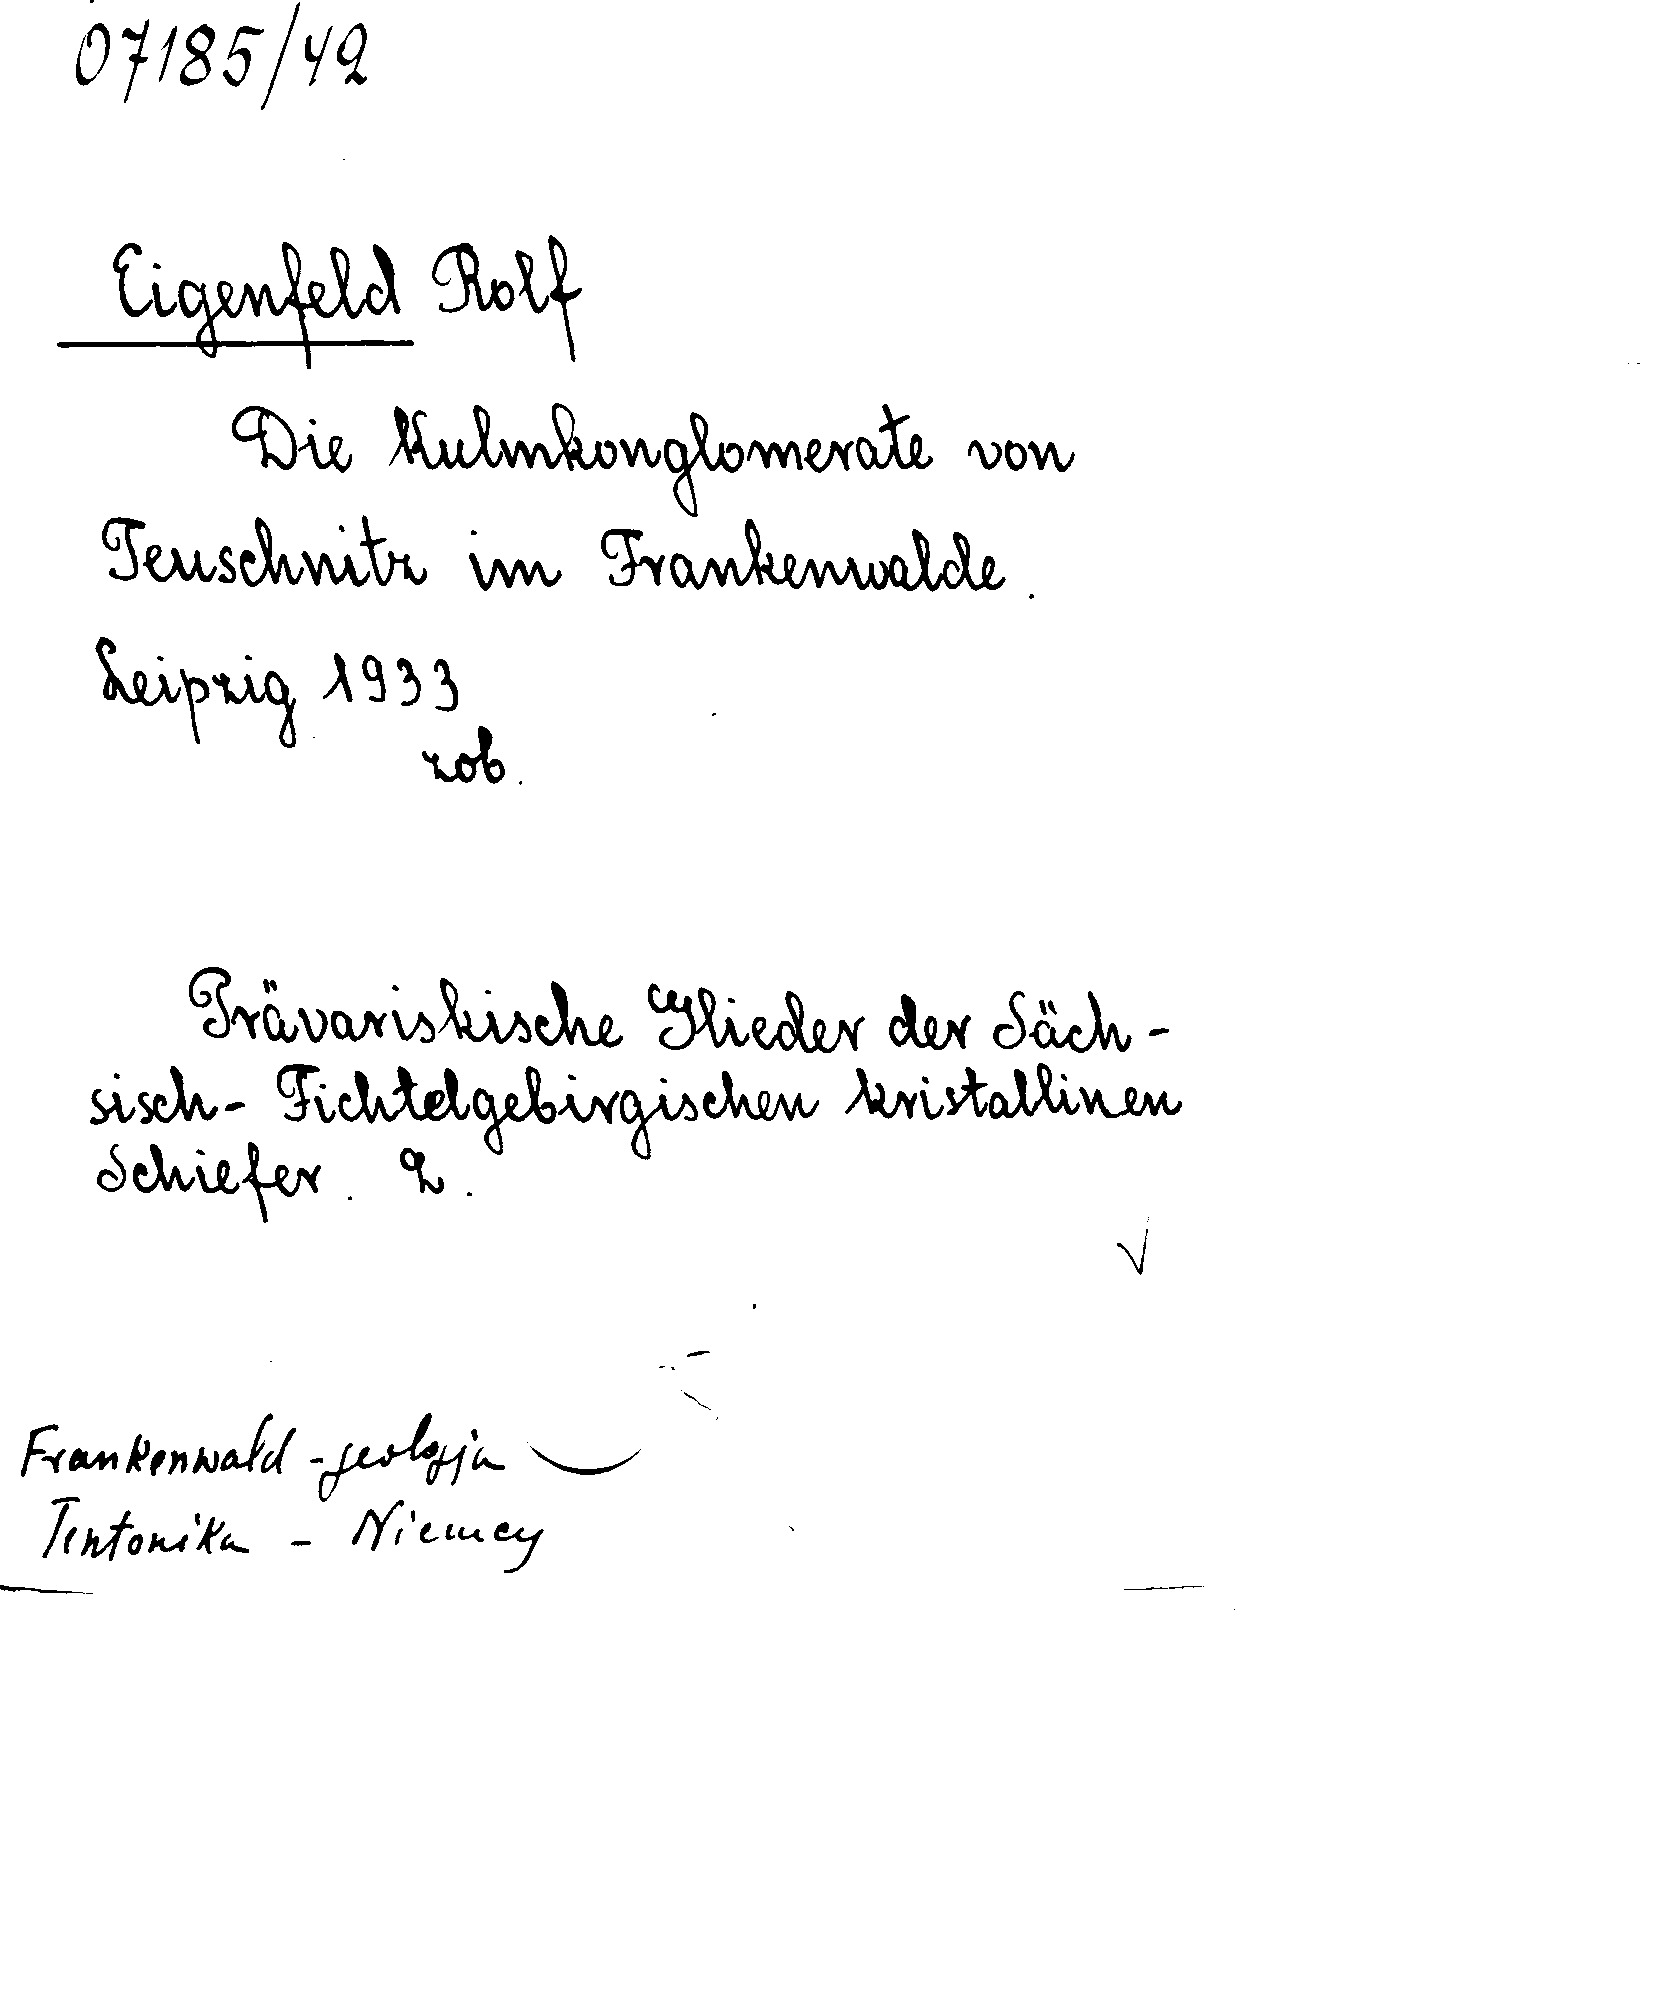 07185/42
Eigenfeld Rolf
Die Kulmkonglomerate von
Teuschnitz im Frankenwalde.
Leipzig 1933
zob.
Prävariskische Glieder der Säch-
sisch-Fichtelgebirgischen kristallinen
Schiefer. 2.
Frankenwald - geologja
Tentonika - Niemcy